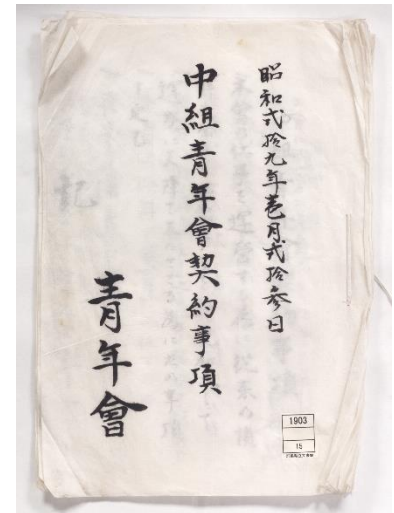 昭和弐拾九年壱月弐拾参日
中組青年會契約事項
青年會
1903
15